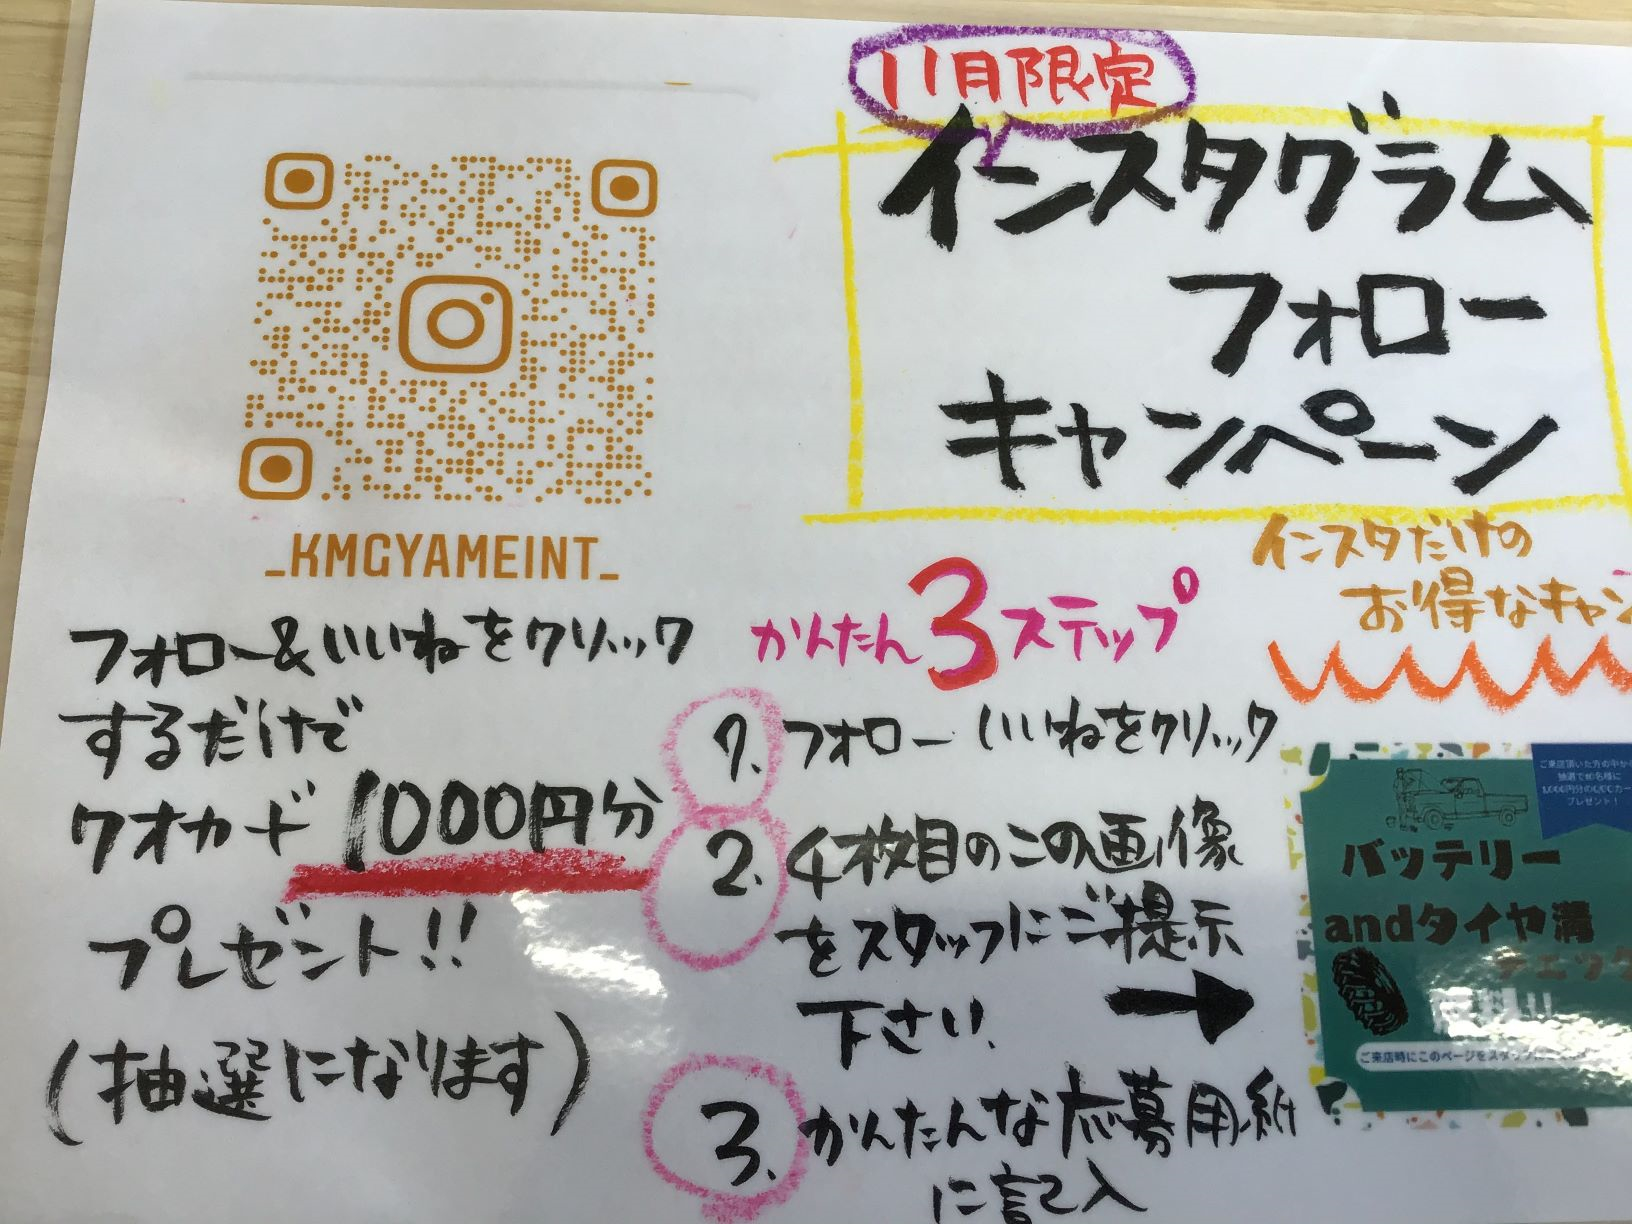 11月限定
インスタグラム
フォロー
キャンペーン
_KMGYAMEINT_
フォロー&いいねをクリック
するだけで
クオカード1000円分
プレゼント!!
(抽選になります)
インスタだけの
お得なキャン
かんたん3ステップ
1. フォロー いいねをクリック
2. 4枚目のこの画像
をスタッフにご提示
下さい.
3. かんたんな応募用紙
に記入
ご来店頂いた方の中から
抽選で10名様に
プレゼント!
バッテリー
andタイヤ溝
チェック
無料!!
ご来店時にこのページをスタッフに